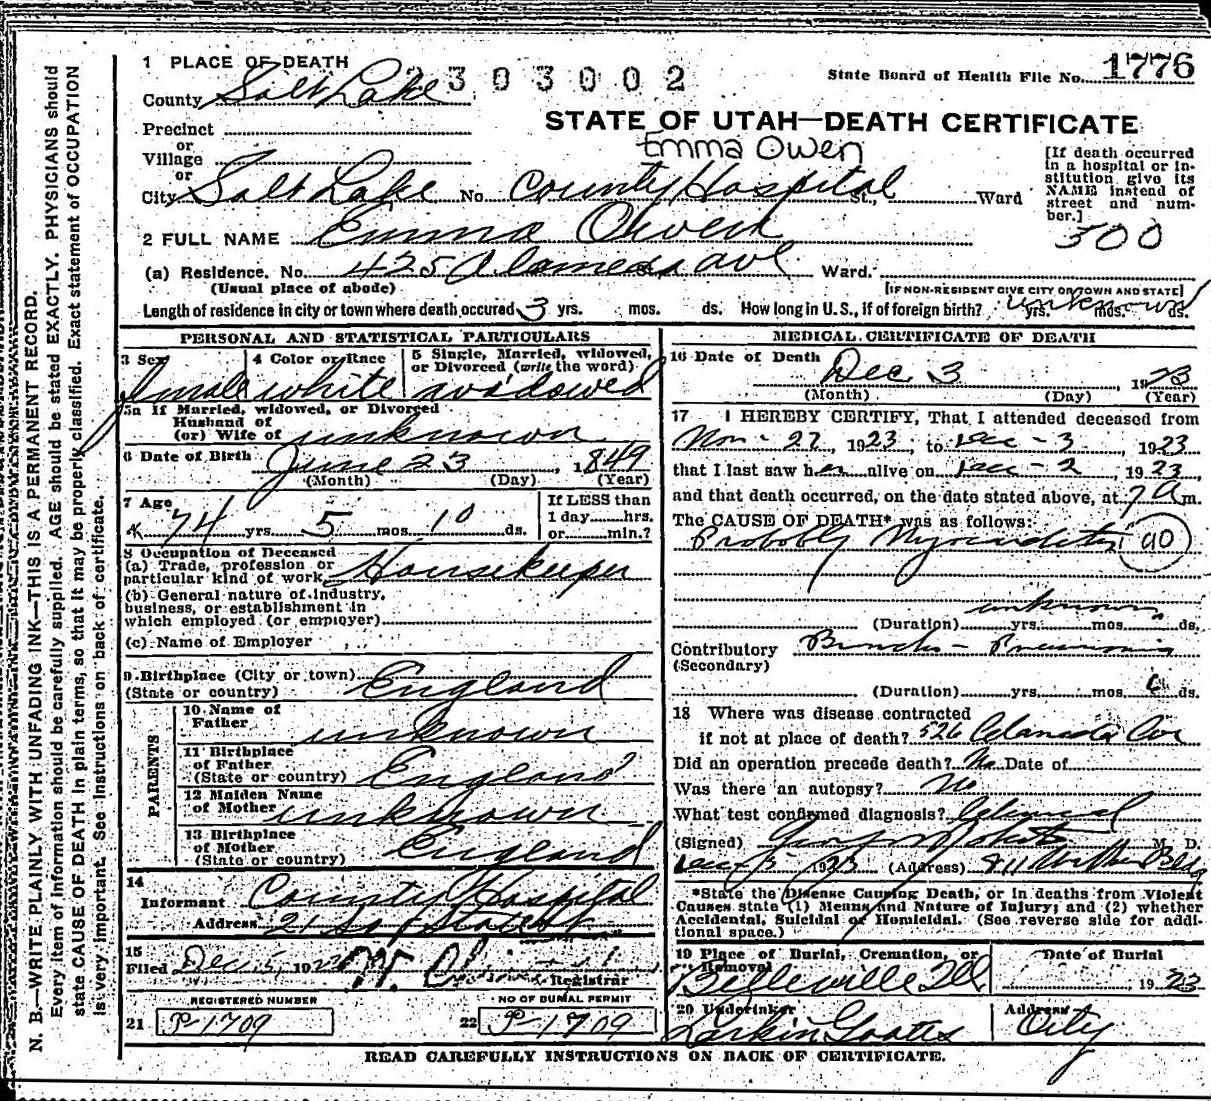 N. B.—WRITE PLAINLY WITH UNFADING INK—THIS IS A PERMANENT RECORD.
Every item of information should be carefully supplied. AGE should be stated EXACTLY. PHYSICIANS should
state CAUSE OF DEATH in plain terms, so that it may be properly classified. Exact statement of OCCUPATION
is very important. See instructions on back of certificate.
1 PLACE OF DEATH 2303002 State Board of Health File No. 1776
County Salt Lake
STATE OF UTAH—DEATH CERTIFICATE
Precinct
or
Village
or
Emma Owen
City Salt Lake No. County Hospital St., Ward
[If death occurred
in a hospital or in-
stitution give its
NAME instead of
street and num-
ber.]
300
2 FULL NAME Emma Owen
(a) Residence. No. 425 Alameda ave Ward.
(Usual place of abode) [IF NON-RESIDENT GIVE CITY OR TOWN AND STATE]
Length of residence in city or town where death occured 3 yrs. mos. ds. How long in U. S., if of foreign birth? unknown yrs. mos. ds.
PERSONAL AND STATISTICAL PARTICULARS
3 Sex female
4 Color or Race white
5 Single, Married, widowed,
or Divorced (write the word)
widowed
5a If Married, widowed, or Divorced
Husband of
(or) Wife of unknown
6 Date of Birth June 23, 1849
(Month) (Day) (Year)
7 Age 74 yrs. 5 mos. 10 ds.
If LESS than
1 day......hrs.
or......min.?
8 Occupation of Deceased
(a) Trade, profession or
particular kind of work Housekeeper
(b) General nature of industry,
business, or establishment in
which employed (or employer)
(c) Name of Employer
9 Birthplace (City or town)
(State or country) England
PARENTS
10 Name of
Father unknown
11 Birthplace
of Father
(State or country) England
12 Maiden Name
of Mother unknown
13 Birthplace
of Mother
(State or country) England
14
Informant County Hospital
Address 21 So & State St
15
Filed Dec. 5, 192 Registrar
REGISTERED NUMBER
21 P-1709
NO OF BURIAL PERMIT
22 P-1709
MEDICAL CERTIFICATE OF DEATH
16 Date of Death
Dec. 3, 1923
(Month) (Day) (Year)
17 I HEREBY CERTIFY, That I attended deceased from
Nov - 27, 1923, to Dec - 3, 1923
that I last saw her alive on Dec - 2, 1923,
and that death occurred, on the date stated above, at 7 A m.
The CAUSE OF DEATH* was as follows:
Probably Myocarditis 90
unknown
(Duration) yrs. mos. ds.
Contributory Broncho - Pneumonia
(Secondary)
(Duration) yrs. mos. 6 ds.
18 Where was disease contracted
if not at place of death? 526 Alameda Ave
Did an operation precede death? No Date of
Was there an autopsy? No
What test confirmed diagnosis? Clinical
(Signed) M. D.
Dec 5, 1923 (Address) 811 Bldg
*State the Disease Causing Death, or in deaths from Violent
Causes state (1) Means and Nature of Injury; and (2) whether
Accidental, Suicidal or Homicidal. (See reverse side for addi-
tional space.)
19 Place of Burial, Cremation, or
Removal
Belleville Ill
Date of Burial
, 1923
20 Undertaker
Larkin
Address
City
READ CAREFULLY INSTRUCTIONS ON BACK OF CERTIFICATE.